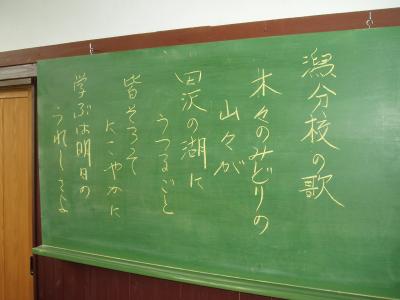 潟分校の歌
木々のみどりの
山々が
田沢の湖に
うつるごと
皆そろって
にこやかに
学ぶは明日の
うれしさよ